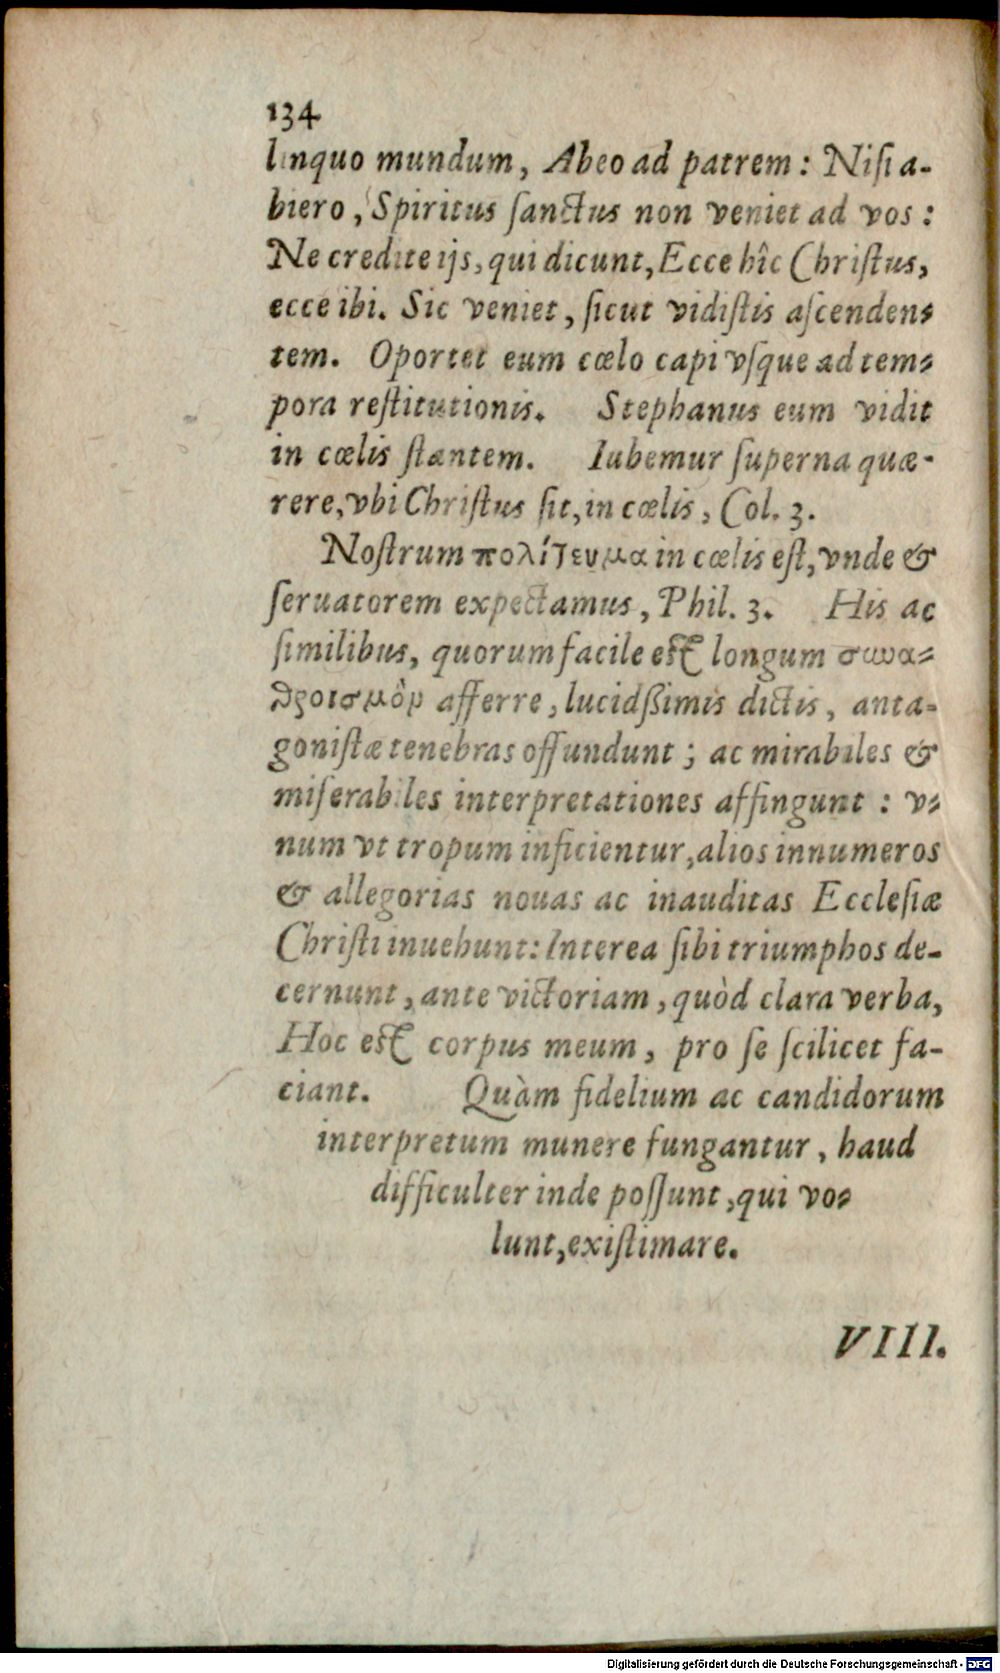 134
linquo mundum, Abeo ad patrem: Niſi a-
biero, Spiritus ſanctus non veniet ad vos:
Ne credite ijs, qui dicunt, Ecce hîc Chriſtus,
ecce ibi. Sic veniet, ſicut vidiſtis aſcenden-
tem. Oportet eum cœlo capi vſque ad tem-
pora reſtitutionis. Stephanus eum vidit
in cœlis ſtantem. Iubemur ſuperna quæ-
rere, vbi Chriſtus ſit, in cœlis, Col. 3.
Noſtrum πολίτευμα in cœlis eſt, vnde &
ſeruatorem expectamus, Phil. 3. His ac
ſimilibus, quorum facile eſt longum συνα-
θροισμὸν afferre, lucidßimis dictis, anta-
goniſtæ tenebras offundunt; ac mirabiles &
miſerabiles interpretationes affingunt: v-
num vt tropum inficientur, alios innumeros
& allegorias nouas ac inauditas Eccleſiæ
Chriſti inuehunt: Interea ſibi triumphos de-
cernunt, ante victoriam, quòd clara verba,
Hoc eſt corpus meum, pro ſe ſcilicet fa-
ciant. Quàm fidelium ac candidorum
interpretum munere fungantur, haud
difficulter inde poſſunt, qui vo-
lunt, exiſtimare.
VIII.
Digitalisierung gefördert durch die Deutsche Forschungsgemeinschaft - DFG